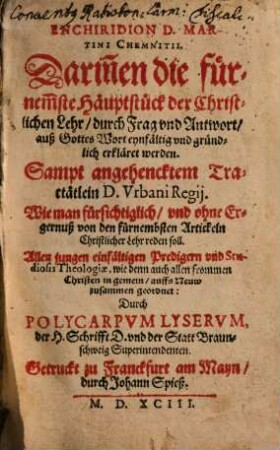 Convents Ratisbon. Carm: Discalc.
ENCHIRIDION D. MAR-
TINI CHEMNITII.
Dariñen die für-
nemste Häuptstück der Christ-
lichen Lehr / durch Frag vnd Antwort /
auß Gottes Wort eynfältig vnd gründ-
lich erkläret werden.
Sampt angehencktem Tra-
ctätlein D. Vrbani Regij.
Wie man fürsichtiglich / vnd ohne Er-
gernuß von den fürnembsten Artickeln
Christlicher Lehr reden soll.
Allen jungen einfältigen Predigern vnd Stu-
diosis Theologiæ, wie denn auch allen frommen
Christen in gemein / auffs Neuw
zusammen geordnet:
Durch
POLYCARPVM LYSERVM,
der H. Schrifft D. vnd der Statt Braun-
schweig Superintendenten.
Getruckt zu Franckfurt am Mayn /
durch Johann Spieß.
M. D. XCIII.